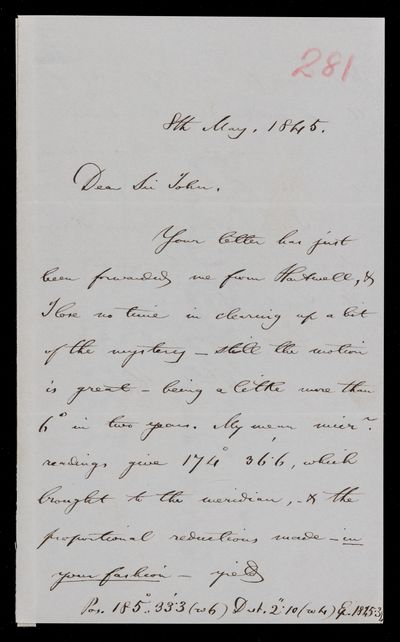 281
8th May, 1845.
Dear Sir John,
Your letter has just
been forwarded me from Hartwell, &
I lose no time in clearing up a bit
of the mystery – still the motion
is great – being a little more than
6° in two years. My mean micr.
readings give 174° 36'.6, which
brought to the meridian, – & the
proportional reductions made – in
your fashion – yield
Pos. 185°.. 33'.3 (w 6) Dist. 2".10 (w 4) Ep. 1845.3